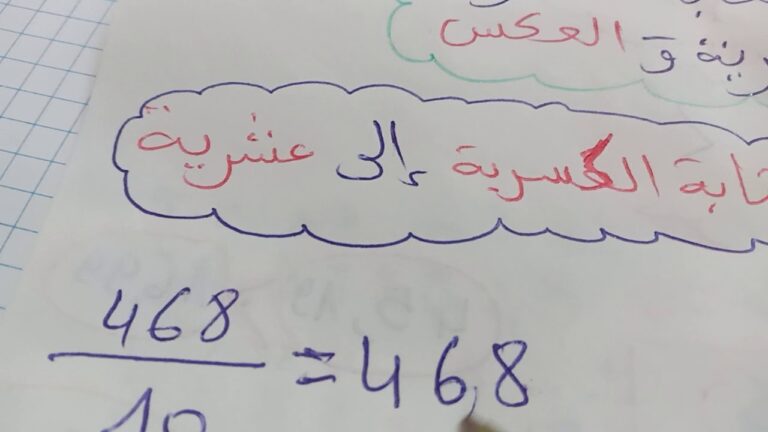 رية و العكس
الكسرية إلى عشرية
468
= 46,8
10